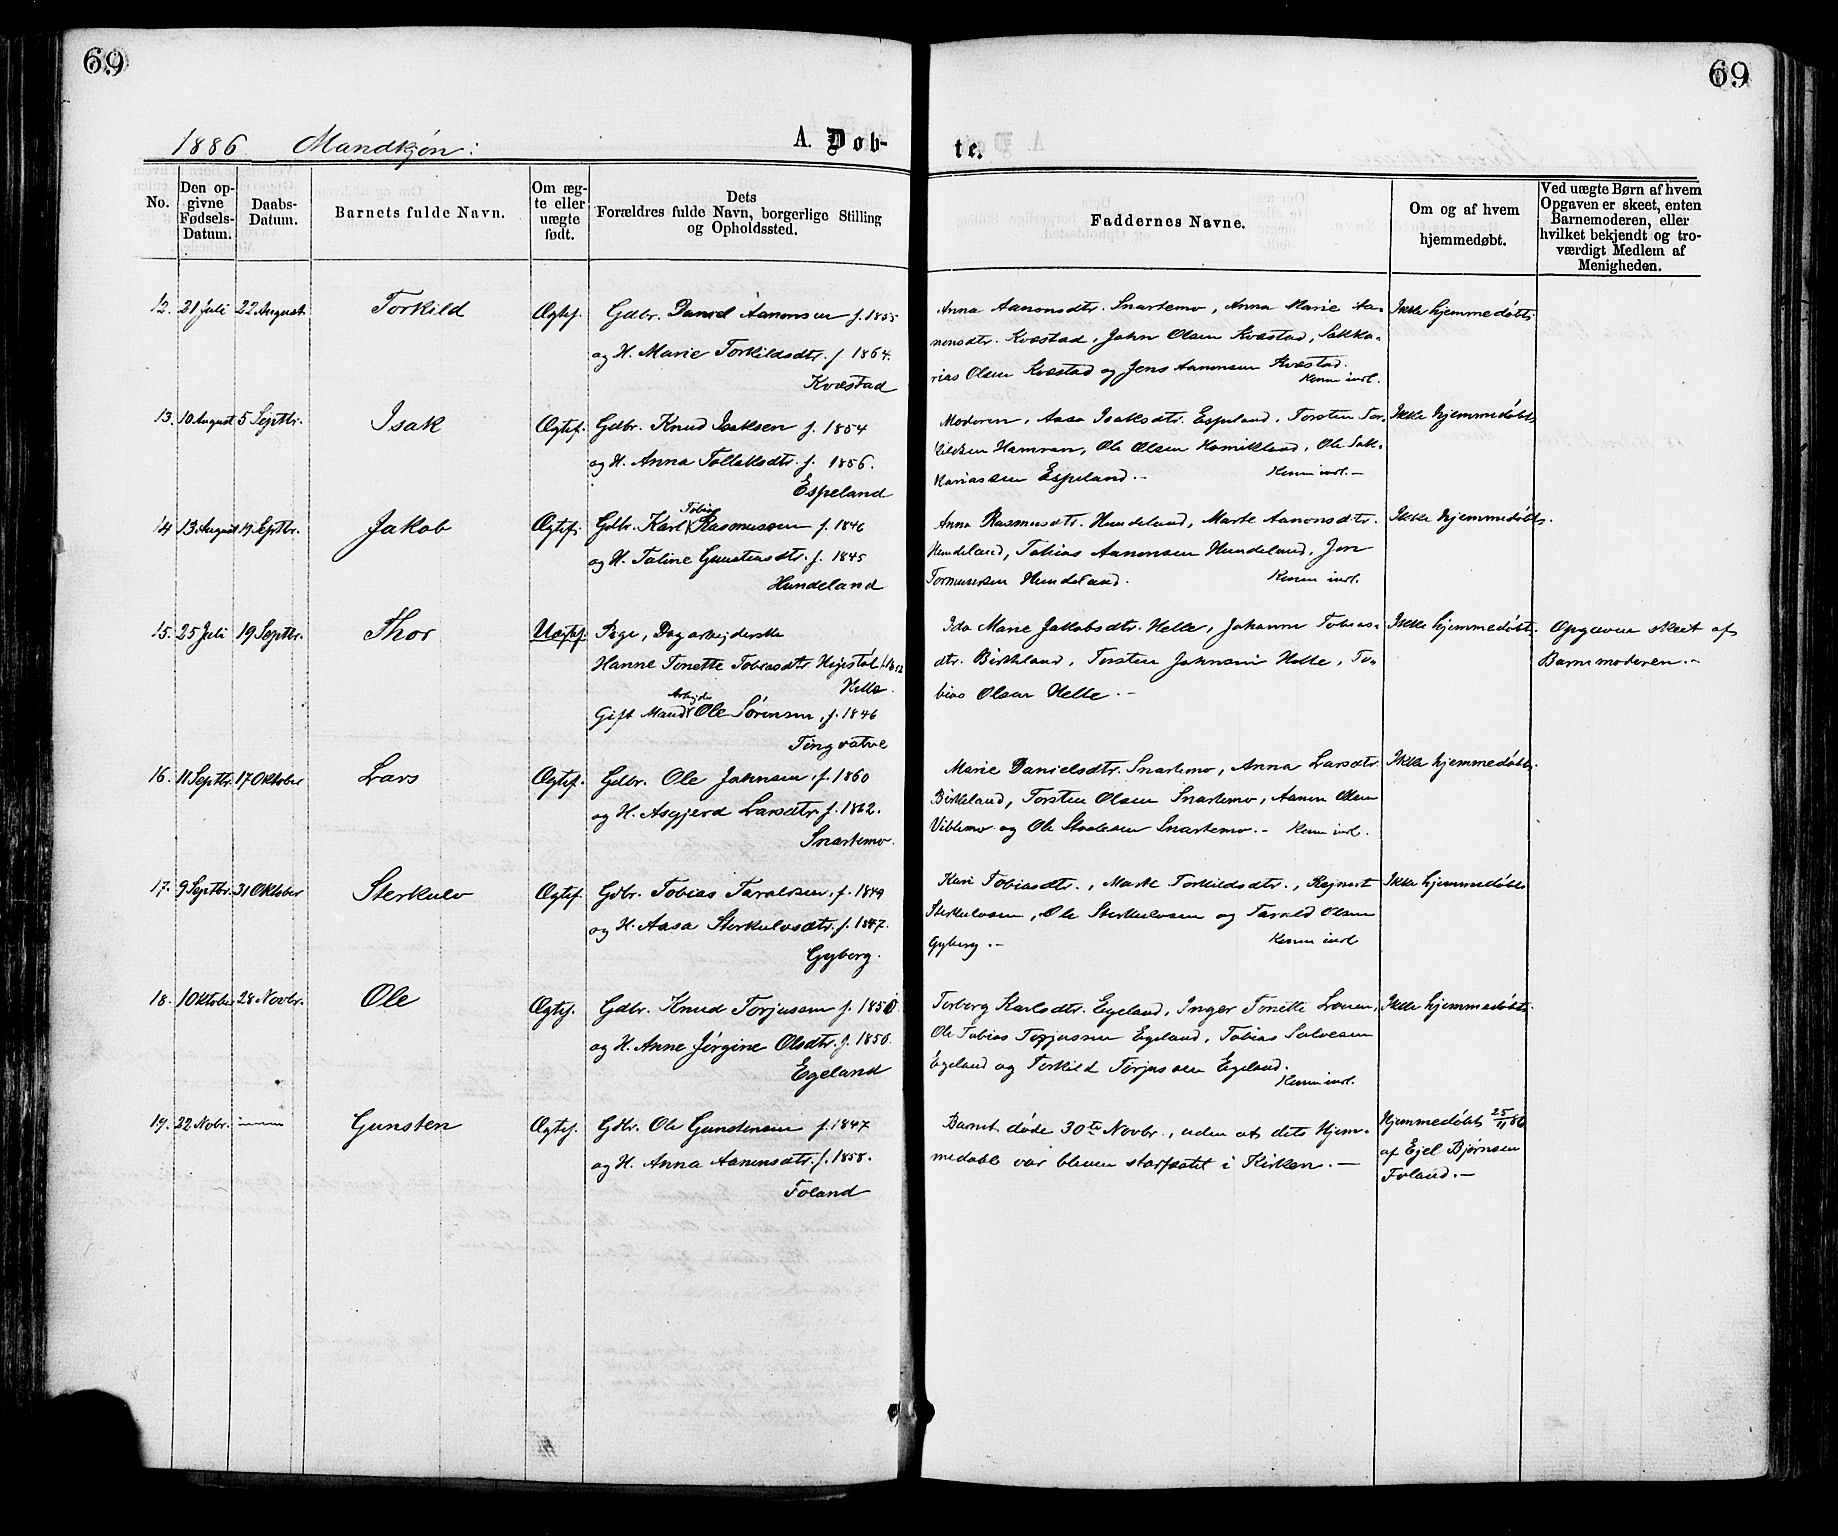 69
69
1886 Mandkjøn:
A. Døb-
te.
No.
Den op-
givne
Fødsels-
Datum.
Daabs-
Datum.
Barnets fulde Navn.
Om æg-
te eller
uægte
født.
Dets
Forældres fulde Navn, borgerlige Stilling
og Opholdssted.
Faddernes Navne.
Om og af hvem
hjemmedøbt.
Ved uægte Børn af hvem
Opgaven er skeet, enten
Barnemoderen, eller
hvilket bekjendt og tro-
værdigt Medlem af
Menigheden.
12. 21 Juli 22 August Torkild Ægtef. Gdbr. Daniel Aanonsen f. 1855
og H. Marie Torkildsdtr. f. 1864.
Kvæstad
Anna Aanonsdtr. Snartemo, Anna Marie Aa-
nonsdtr. Kvæstad, John Olsen Kvæstad, Sakka-
rias Olsen Kvæstad og Jens Aanonsen Kvæstad.
Ikke hjemmedøbt.
13. 10 August 5 Septbr. Isak Ægtef. Gdbr. Knud Isaksen f. 1854
og H. Anna Tollaksdtr. f. 1856.
Espeland
Moderen, Aasa Isaksdtr. Espeland, Torsten Tor-
kildsen Hamran, Ole Olsen Homikland, Ole Sak-
kariassen Espeland.-
Ikke hjemmedøbt.
14 13 August 19 Septbr. Jakob Ægtef. Gdbr. Karl Tobias Rasmussen f. 1846
og H. Taline Gunstensdtr. f. 1845
Hundeland
Anna Rasmusdtr. Hundeland, Marte Aanonsdtr.
Hundeland, Tobias Aanonsen Hundeland, Jon
Hundeland.
Ikke hjemmedøbt.
15. 25 Juli 19 Septbr. Thor Uægtef. Pige, Dagarbejderske
Hanne Tonette Tobiasdtr.
Helle.
Gift Mand Arbejder Ole Sørensen, f. 1846
Tingvatne
Ida Marie Jakobsdtr. Helle, Johanne Tobias-
dtr. Birkeland, Torsten Johnsen Helle, To-
bias Olsen Helle.-
Ikke hjemmedøbt.
Opgaven skeet af
Barnemoderen.-
16. 11 Septbr. 17 Oktober Lars Ægtef. Gdbr. Ole Johnsen, f. 1860
og H. Asgjerd Larsdtr. f. 1862.
Snartemo.
Marie Danielsdtr. Snartemo, Anna Larsdtr.
Birkeland, Torsten Olsen Snartemo, Aanen Olsen
Viblemo og Ole Staalesen Snartemo.-
Ikke hjemmedøbt.
17. 9 Septbr. 31 Oktober Sterkulv Ægtef. Gdbr. Tobias Taraldsen, f. 1849
og H. Aasa Sterkulvsdtr. f. 1847.
Gyberg.
Kari Tobiasdtr., Marte Torkildsdtr., Rejnert
Sterkulvsen, Ole Sterkulvsen og Tarald Olsen
Gyberg.-
Ikke hjemmedøbt.
18. 1 Oktober 28 Novbr. Ole Ægtef. Gdbr. Knud Torjussen f. 1850
og H. Anne Jørgine Olsdtr. f. 1850.
Egeland
Torborg Karlsdtr. Egeland, Inger Tonette
Ole Tobias Torjussen Egeland, Tobias Salvesen
Egeland og Torkild Torjussen Egeland.
Ikke hjemmedøbt.
19. 22 Novbr. Gunsten Ægtef. Gdbr. Ole Gunstensen f. 1847
og H. Anna Aanensdtr. f. 1858.
Foland
Barnet døde 30te Novbr., uden at dets Hjem-
medaab var bleven stadfæstet i Kirken.-
Hjemmedøbt 25/11 86
af Ejel Bjørnsen
Foland.-